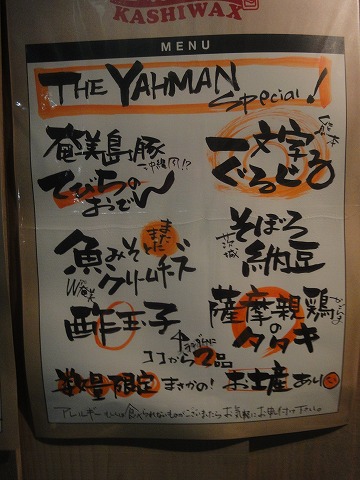 KASHIWAX
MENU
THE YAHMAN
Special!
奄美島豚
沖縄風!?
てびちの
おでん
一文字
ぐるぐる
またまた
魚みそ
クリームチーズ
W奄美
そぼろ
納豆
茨城
酢玉子
薩摩親鶏
の
タタキ
ココから2品
数量限定
まさかの!
お土産あり
アレルギーもしくは食べられないものがございましたらお気軽にお申付け下さい。